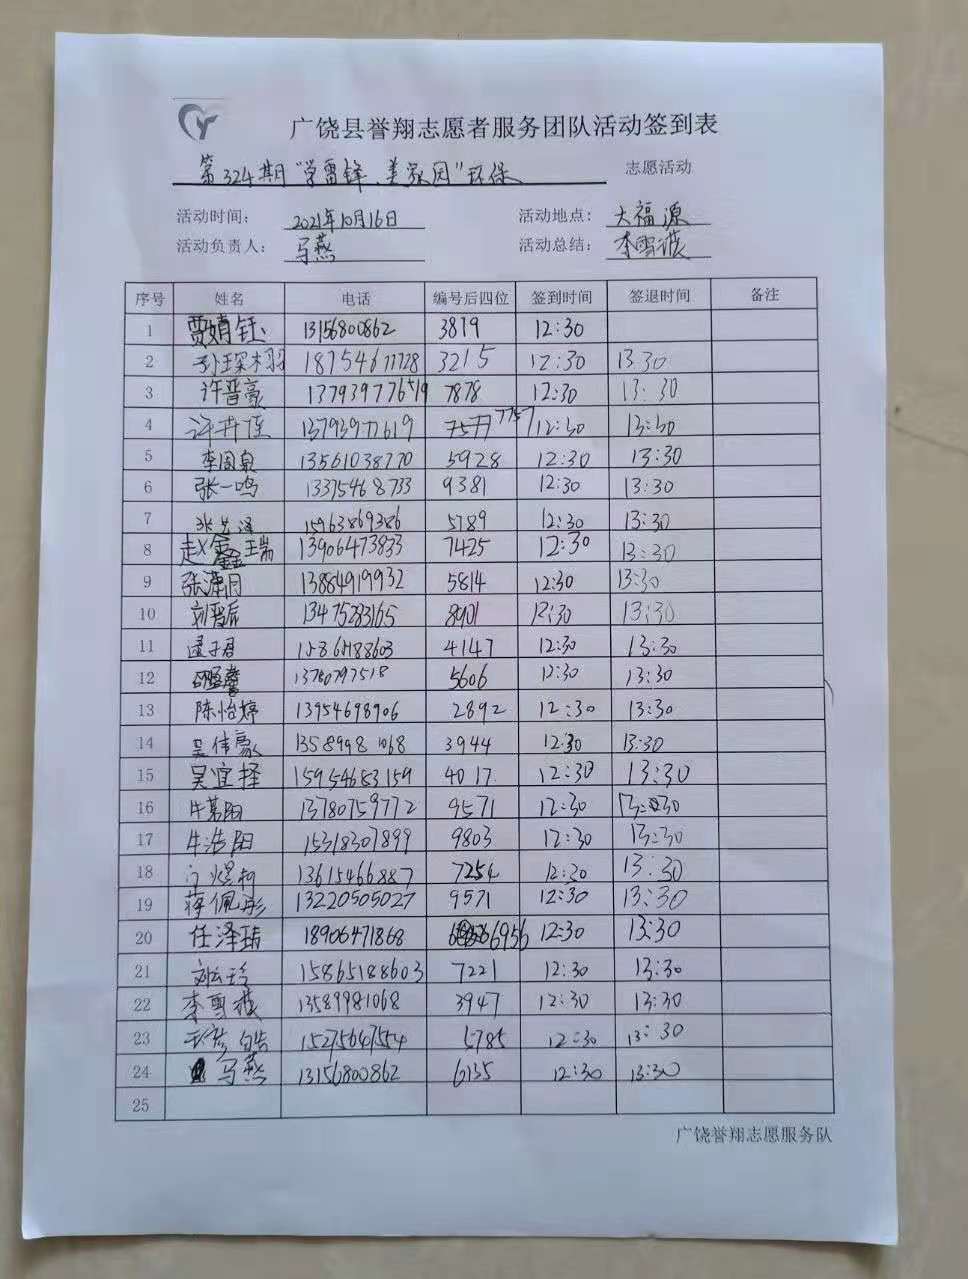 广饶县誉翔志愿者服务团队活动签到表
第324期"学雷锋、美家园"环保 志愿活动
活动时间: 2021年10月16日 活动地点: 大福源
活动负责人: 马燕 活动总结: 李雪薇
序号 姓名 电话 编号后四位 签到时间 签退时间 备注
1 贾婧钰 13156800862 3819 12:30
2 18754671728 3215 12:30 13:30
3 许晋豪 7878 12:30 13:30
4 13793977619 7757 12:30 13:30
5 李国泉 13561038770 5928 12:30 13:30
6 张一鸣 13375468733 9381 12:30 13:30
7 15963869386 5789 12:30 13:30
8 赵鑫瑞 13906473833 7425 12:30 13:30
9 张潇月 13884919932 5814 12:30 13:30
10 13475283165 8901 12:30 13:30
11 孟子君 15865188603 4147 12:30 13:30
12 13780797518 5606 12:30 13:30
13 陈怡婷 13954698906 2892 12:30 13:30
14 吴伟豪 13589981068 3944 12:30 13:30
15 吴宜择 15954683159 4017 12:30 13:30
16 13780759772 9571 12:30 13:30
17 牛浩阳 15318307899 9803 12:30 13:30
18 13615466887 7254 12:30 13:30
19 蒋佩彤 13220505027 9571 12:30 13:30
20 任泽瑀 18906471868 6956 12:30 13:30
21 刘云玲 15865188603 7221 12:30 13:30
22 李雪薇 13589981068 3947 12:30 13:30
23 15275647554 5785 12:30 13:30
24 马燕 13156800862 6135 12:30 13:30
25
广饶誉翔志愿服务队